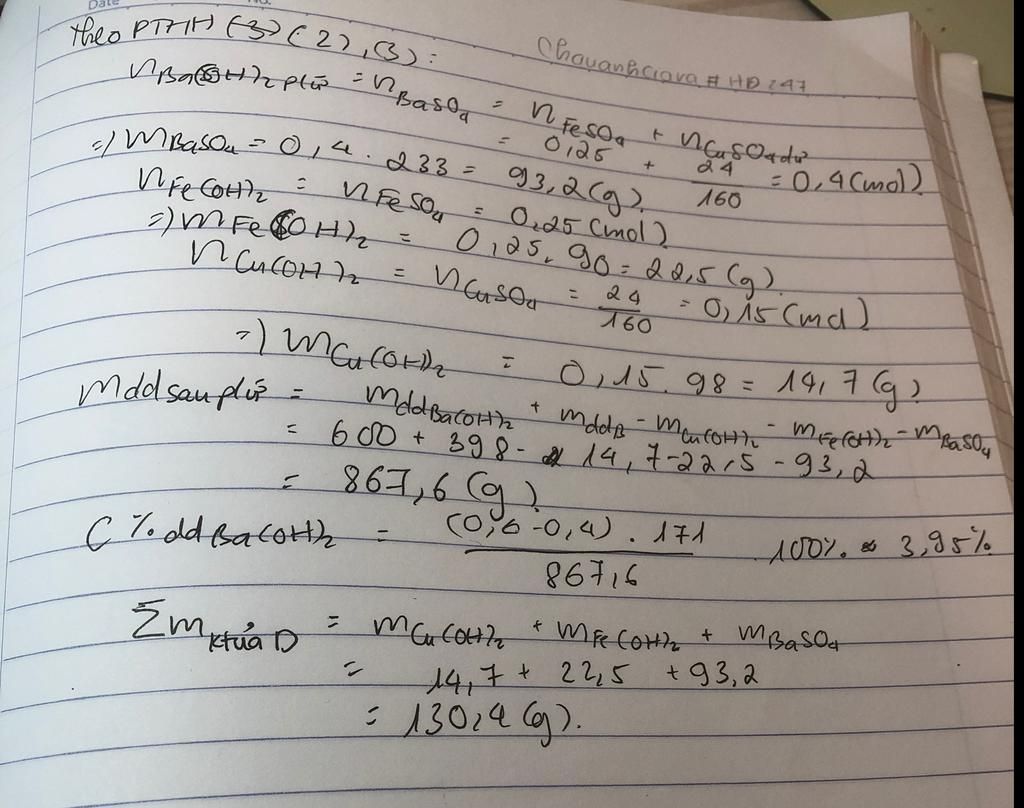 Date No.
theo PTHH (3) (2), (3):
Chauanhciara # HD 247
nBa(OH)2 pứ = nBaSO4 = nFeSO4 + nCuSO4 dư
= 0,25 + 24/160 = 0,4 (mol)
=) mBaSO4 = 0,4 . 233 = 93,2 (g)
nFe(OH)2 = nFeSO4 = 0,25 (mol)
=) mFe(OH)2 = 0,25 . 90 = 22,5 (g)
nCu(OH)2 = nCuSO4 = 24/160 = 0,15 (mol)
=) mCu(OH)2 = 0,15 . 98 = 14,7 (g)
mdd sau pứ = mddBa(OH)2 + mddB - mCu(OH)2 - mFe(OH)2 - mBaSO4
= 600 + 398 - 14,7 - 22,5 - 93,2
= 867,6 (g)
C % ddBa(OH)2 = (0,6 - 0,4) . 171 / 867,6 100% ≈ 3,95%
Σm ktủa D = mCu(OH)2 + mFe(OH)2 + mBaSO4
= 14,7 + 22,5 + 93,2
= 130,4 (g).